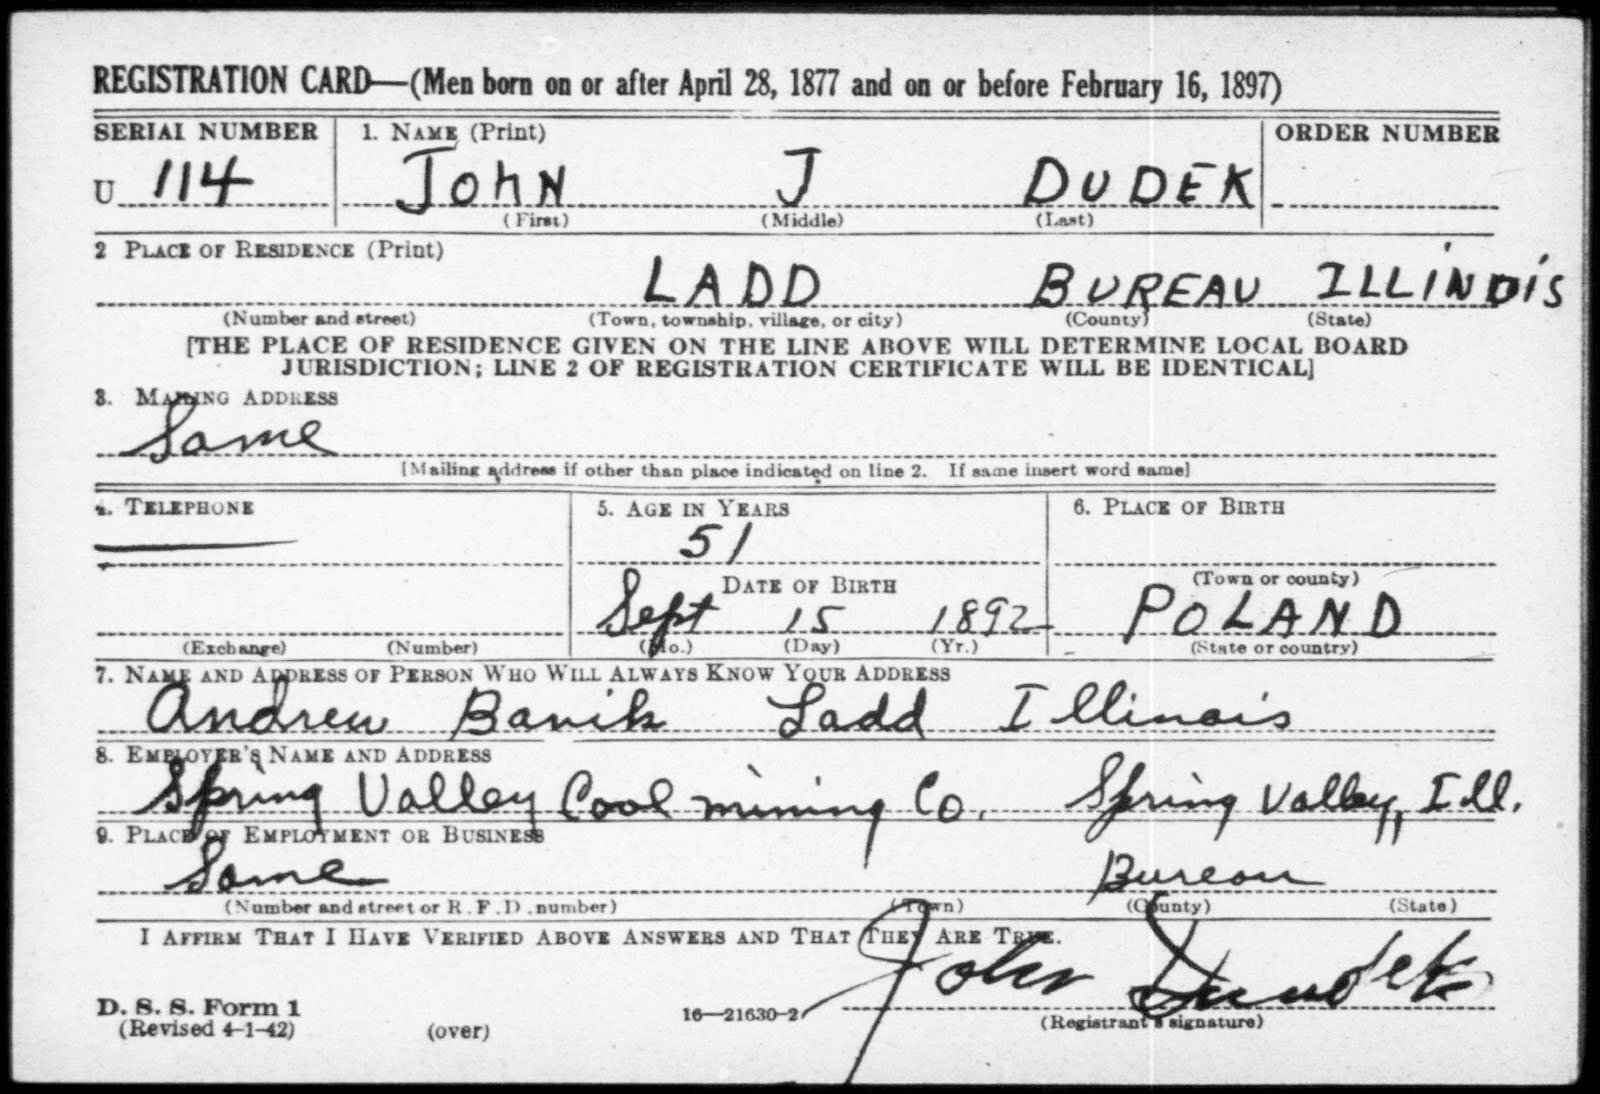 REGISTRATION CARD—(Men born on or after April 28, 1877 and on or before February 16, 1897)
SERIAL NUMBER 1. NAME (Print) ORDER NUMBER
U 114 JOHN J DUDEK
(First) (Middle) (Last)
2 PLACE OF RESIDENCE (Print)
LADD BUREAU ILLINOIS
(Number and street) (Town, township, village, or city) (County) (State)
[THE PLACE OF RESIDENCE GIVEN ON THE LINE ABOVE WILL DETERMINE LOCAL BOARD
JURISDICTION; LINE 2 OF REGISTRATION CERTIFICATE WILL BE IDENTICAL]
3. MAILING ADDRESS
Same
[Mailing address if other than place indicated on line 2. If same insert word same]
4. TELEPHONE 5. AGE IN YEARS 6. PLACE OF BIRTH
51
(Town or county)
DATE OF BIRTH
Sept 15 1892 POLAND
(Exchange) (Number) (Mo.) (Day) (Yr.) (State or country)
7. NAME AND ADDRESS OF PERSON WHO WILL ALWAYS KNOW YOUR ADDRESS
Andrew Banik Ladd Illinois
8. EMPLOYER'S NAME AND ADDRESS
Spring Valley Coal mining Co. Spring Valley, Ill.
9. PLACE OF EMPLOYMENT OR BUSINESS
Same Bureau
(Number and street or R.F.D. number) (Town) (County) (State)
I AFFIRM THAT I HAVE VERIFIED ABOVE ANSWERS AND THAT THEY ARE TRUE.
John Duudek
D. S. S. Form 1
(Revised 4-1-42) (over) 16—21630-2 (Registrant's signature)